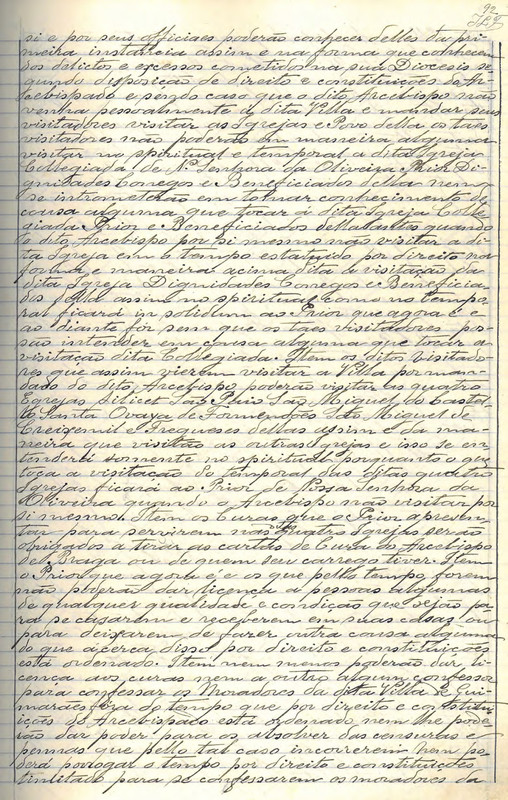 92
si e por seus officiaes poderão conhecer delles da pri-
meira instancia assim e na forma que conhecem
dos delictos e excessos cometidos na sua Diocesis se-
gundo disposição de direito e constituições do Ar-
cebispado e sendo caso que o dito Arcebispo não
venha pessoalmente á dita Villa e mandar seus
visitadores visitar as Igrejas e Povo della os taes
visitadores não poderão em maneira alguma
visitar no spiritual e temporal a dita Igreja
Collegiada de N. Senhora da Oliveira Prior Di-
gnidades Conegos e Beneficiados della nem
se intrometerão em tomar conhecimento de
cousa alguma que tocar á dita Igreja Colle-
giada Prior e Beneficiados della e quando
o dito Arcebispo por si mesmo não visitar a di-
ta Igreja em o tempo estatuido por direito na
forma e maneira acima dita a visitação da
dita Igreja Dignidades Conegos e Beneficia-
dos della assim no spiritual como no tempo-
ral ficará in solidum ao Prior que agora é e
ao diante fôr sem que os taes visitadores pos-
são intender em cousa alguma que tocar a
visitação dita Collegiada. Item os ditos visitado-
res que assim vierem visitar a Villa por man-
dado do dito Arcebispo poderão visitar as quatro
Egrejas silicet São Paio São Miguel do Castel-
lo Santa Ovaya de Fermendões São Miguel de
Creixemil e Freguezes dellas assim e da ma-
neira que visitão as outras Igrejas e isso se en-
tenderá somente no spiritual porquanto o que
toca a visitação do temporal das ditas quatro
Igrejas ficará ao Prior de Nossa Senhora da
Oliveira quando o Arcebispo não visitar por
si mesmo. Item os Curas que o Prior apresen-
tar para servirem nas quatro Igrejas serão
obrigados a tirar as cartas de Cura do Arcebispo
de Braga ou de quem seu carrego tiver. Item
o Prior que agora é e os que pello tempo forem
não poderão dar licença a pessoas algumas
de qualquer qualidade e condição que sejão pa-
ra se casarem e receberem em suas casas ou
para deixarem de fazer outra cousa alguma
do que acerca disso por direito e constituições
está ordenado. Item nem menos poderão dar li-
cença aos curas nem a outro algum confessor
para confessar os Moradores da dita Villa de Gui-
marães fora do tempo que por direito e constitui-
ições do Arcebispado está ordenado nem lhe pode-
rão dar poder para os absolver das censuras e
pennas que pello tal caso incorrerem nem po-
derá porlogar o tempo por direito e constituições
limitado para se confessarem os moradores da